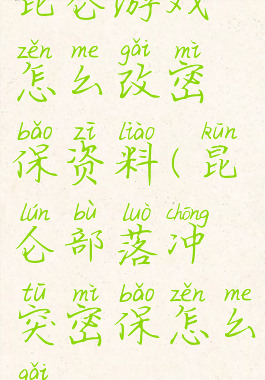 昆仑游戏
zěn me gǎi mì
怎么改密
bǎo zī liào kūn
保资料(昆
lún bù luò chōng
仑部落冲
tū mì bǎo zěn me
突密保怎么
gǎi